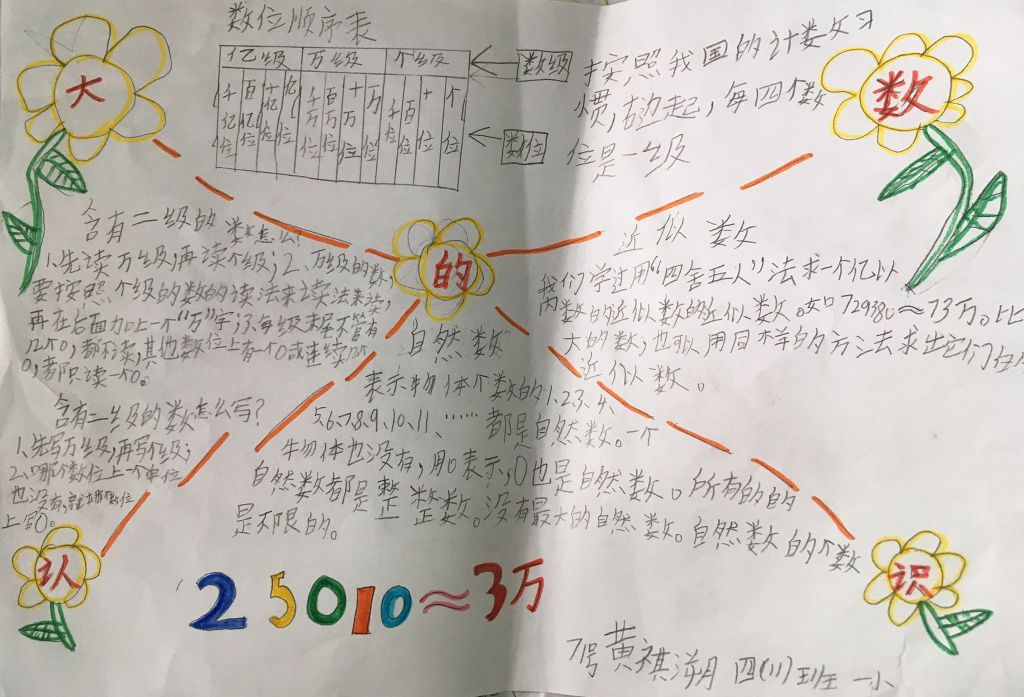 大
数位顺序表
亿级 万级 个级
数级
千亿位 百亿位 十亿位 亿位 千万位 百万位 十万位 万位 千位 百位 十位 个位
数位
按照我国的计数习
惯,右边起,每四个数
位是一级
数
含有二级的数怎么?
1、先读万级,再读个级;2、万级的数,
要按照个级的数的读法来读法来读,
再在后面加上一个“万”字;3、每级末尾不管有
几个0,都不读,其他数位上有一个0或连续几个
0,都只读一个0。
含有二级的数怎么写?
1、先写万级,再写个级;
2、哪个数位上一个单位
也没有,就在那个数位
上写0。
的
近似数
我们学过用“四舍五入”法求一个亿以
内数的近似数的近似数。如729380≈73万。比
大的数,也可以用同样的方法求出它们的
近似数。
自然数
表示物体个数的1、2、3、4、
5、6、7、8、9、10、11、……都是自然数。一个
物体也没有,用0表示,0也是自然数。所有的的
自然数都是整 整数。没有最大的自然数。自然数的个数
是不限的。
认
识
25010≈3万
71号 黄祺溯 四(11)班 一小